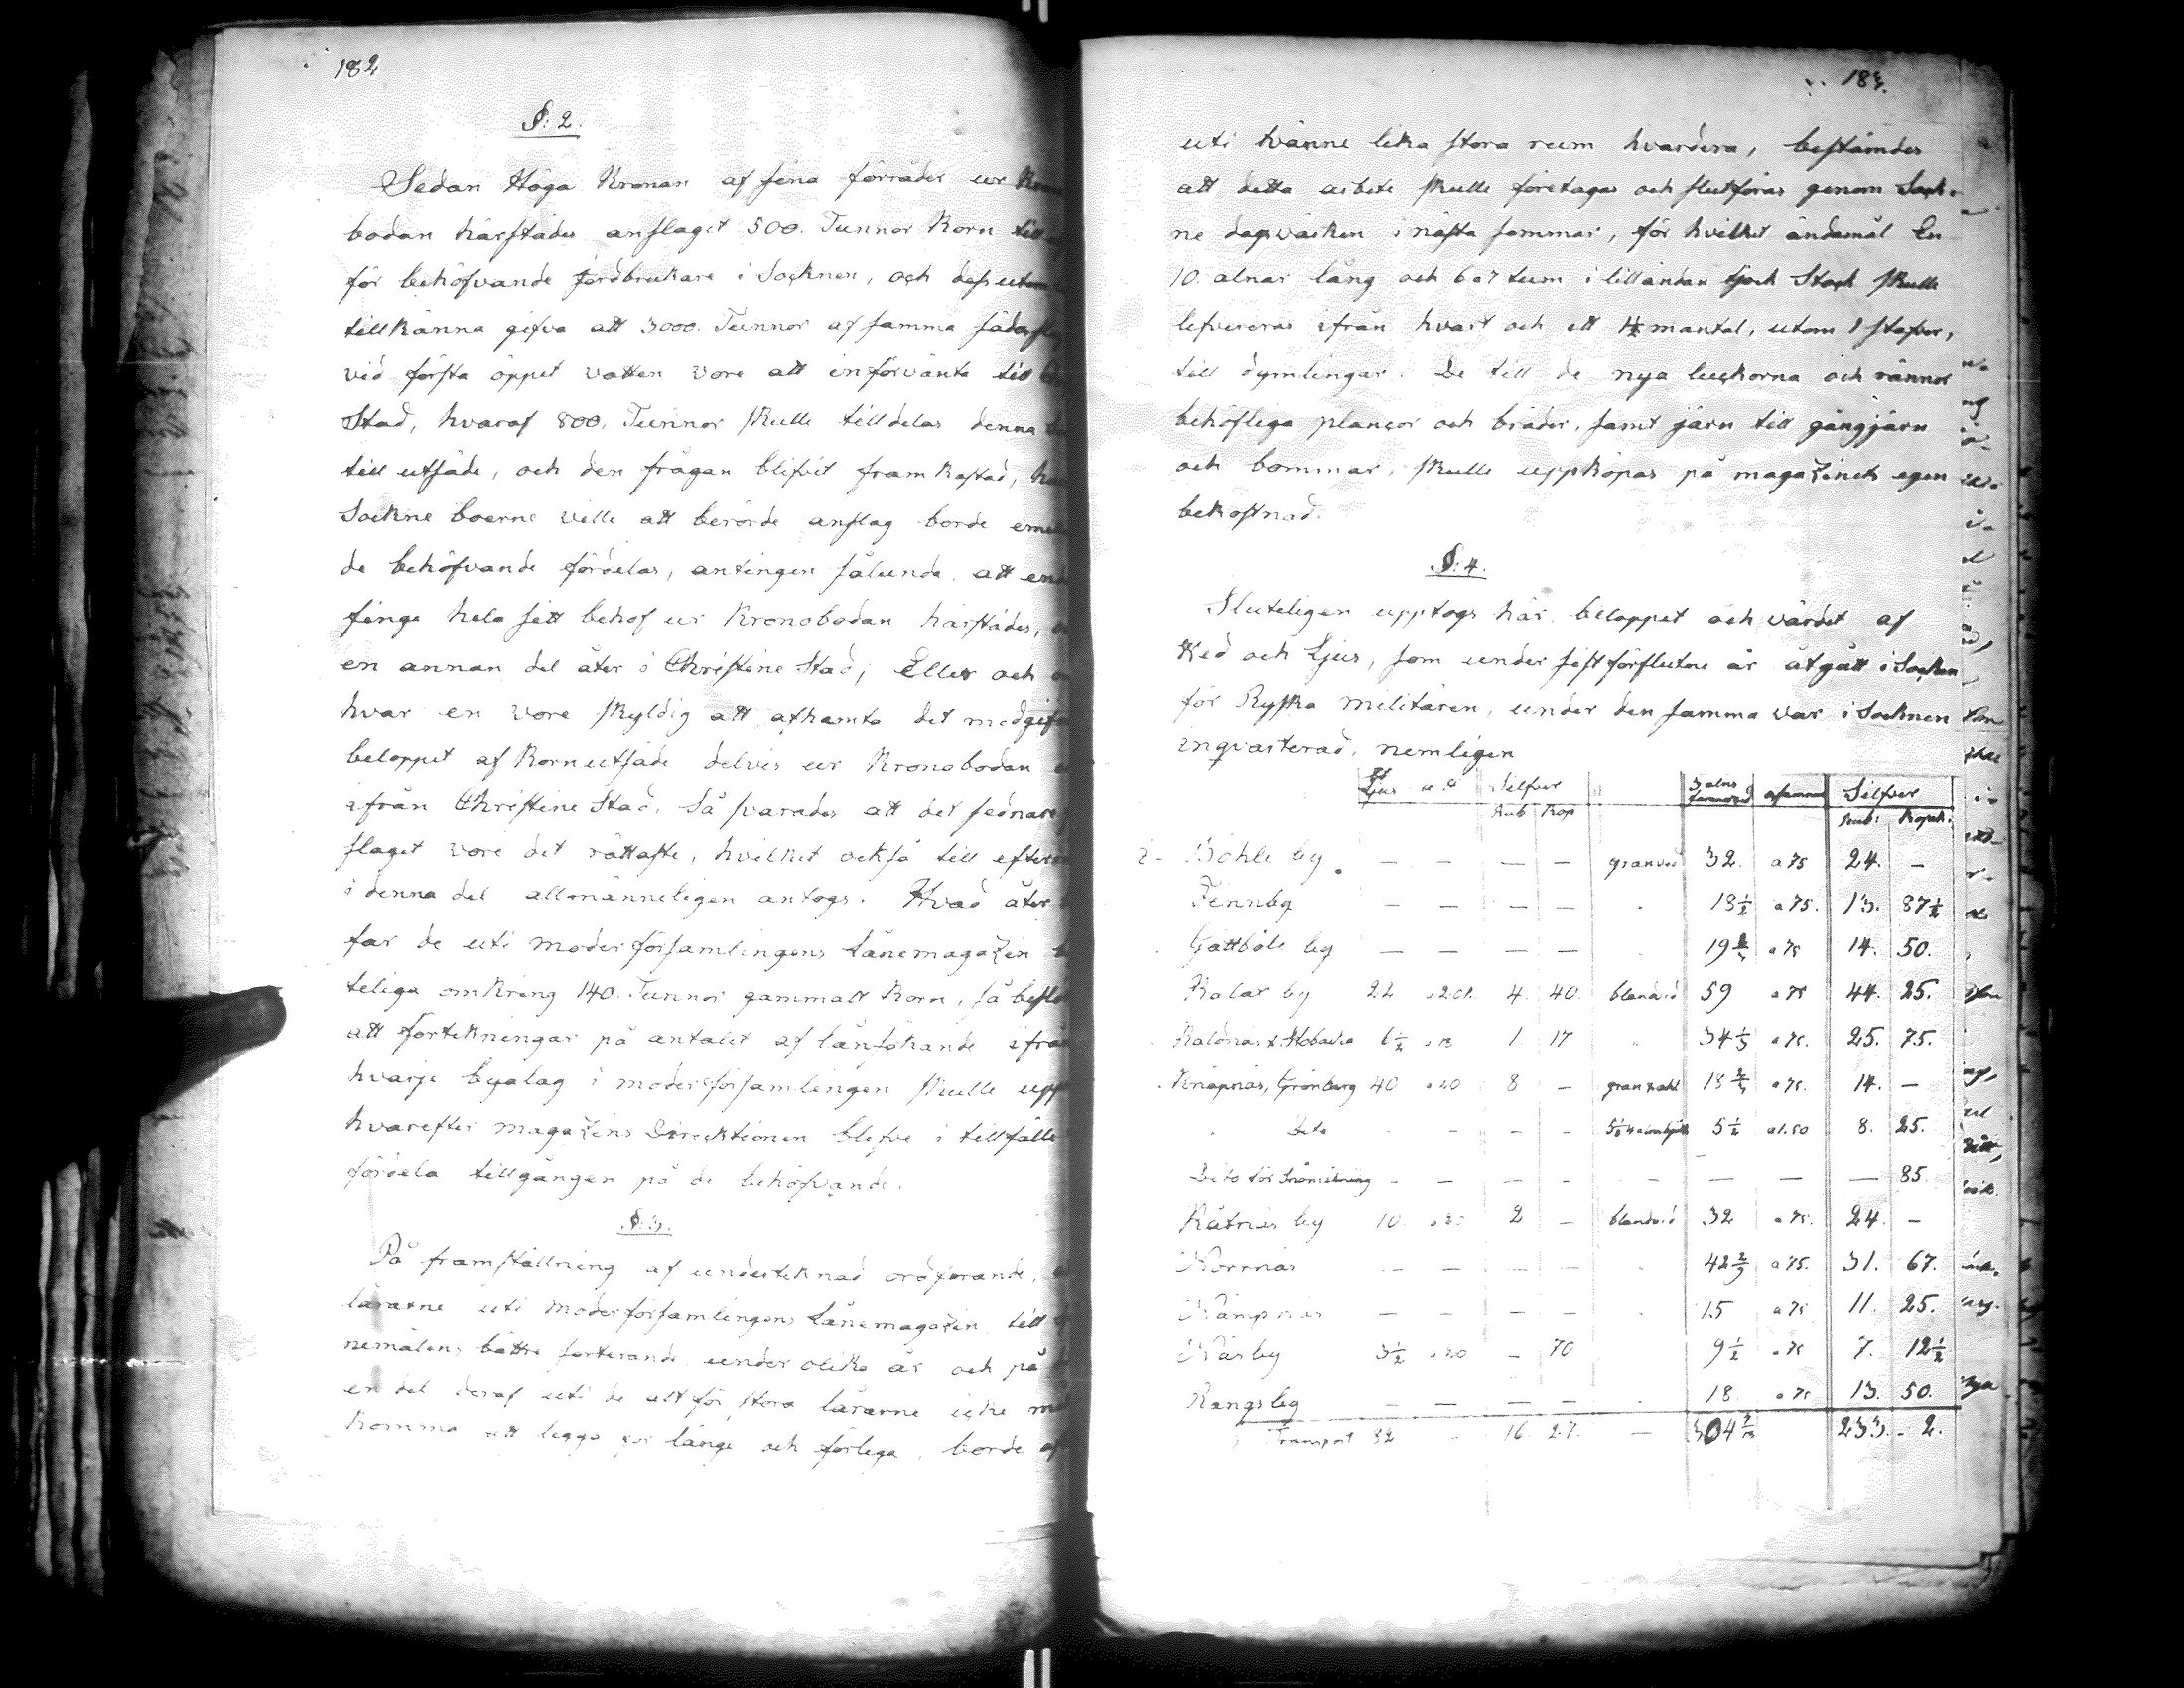 182
§: 2.
Sedan Höga Kronan af sina förråder ur
bodan härstädes anslagit 500. Tunnor Korn till
för behöfvande jordbrukare i Socknen, och dessutom
tillkänna gifva att 3000. Tunnor af samma
vid första öppet vatten vore att införvänta till
Stad, hvaraf 800. Tunnor skulle tilldelas denna
till utsäde, och den frågan blifvit framkastad,
Sockne boerne ville att berörde anslag borde
de behöfvande fördelas, antingen sålunda att
finge hela sitt behof ur Kronobodan härstädes,
en annan del åter i Christine Stad; Eller och
hvar en vore skyldig att afhämta det
beloppet af Kornutsäde delvis ur Kronobodan
ifrån Christine Stad. Så svarades att det sednare
slaget vore det rättaste, hvilket också till
i denna del allmänneligen antogs. Hvad åter
far de uti moderförsamlingens Lånemagazin
teliga omkring 140. Tunnor gammalt Korn, så
att förtekningar på antalet af lånsökande ifrån
hvarje byalag i moderförsamlingen skulle
hvarefter magazins Direcktionen blefve i tillfälle
fördela tillgången på de behöfvande.
§: 3.
På framställning af undertecknad ordförande,
lårarne uti moderförsamlingens Lånemagazin till
nemålens bättre sorterande under olika år och på
en del deraf uti de allt för stora lårarne icke
komma att ligga för länge och förlega, borde
183.
uti tvänne lika stora rum hvardera, bestämdes
att detta arbete skulle företagas och slutföras genom Sock-
ne dagsvärken i nästa sommar, för hvilket ändamål En
10. alnar lång och 6 a 7 tum i lilländan tjock Stock skulle
lefvereras ifrån hvart och ett mantal, utom 1 stafver,
till dymlingar. De till de nya luckorna och rännor
behöfliga planeor och bräder, samt järn till gångjärn
och bommar, skulle uppköpas på magazinets egen
bekostnad.
§: 4.
Sluteligen upptogs här beloppet och värdet af
Ved och Ljus, som under sist förflutne år åtgått i Socken
för Ryska militären, under den samma var i Socknen
inqvarterad, nemligen
Ljus Silfver 3 alns famnved a famnen Silfver
Rub Kop Rub: Kopek:
Böhle by — — — — granved 32. a 75 24. —
Finnby — — — — 18½ a 75. 13. 87½
Gottböle by — — — — 19⅓ a 75 14. 50.
Kalax by 22 a 20. 4. 40. blandved 59 a 75 44. 25.
Kaldnäs & Stobacka 6½ a 18 1 17 34⅓ a 75. 25. 75.
Knåpnäs, Grönberg 40 a 20 8 — 18⅔ a 75. 14. —
Dito - - - - 5½ a 1.50 8. 25.
Dito för - - - - - — — — 85.
Råtnäs by 10. 2 — blandved 32 a 75. 24. —
Norrnäs — — — — 42⅔ a 75. 31. 67.
Nämpnäs — — — — 15 a 75 11. 25.
Näsby 3½ a 20 — 70 9½ a 75 7. 12½
Rangsby — — — — 18 a 75 13. 50.
Transport 32 - 16. 27. — 304 233. 2.